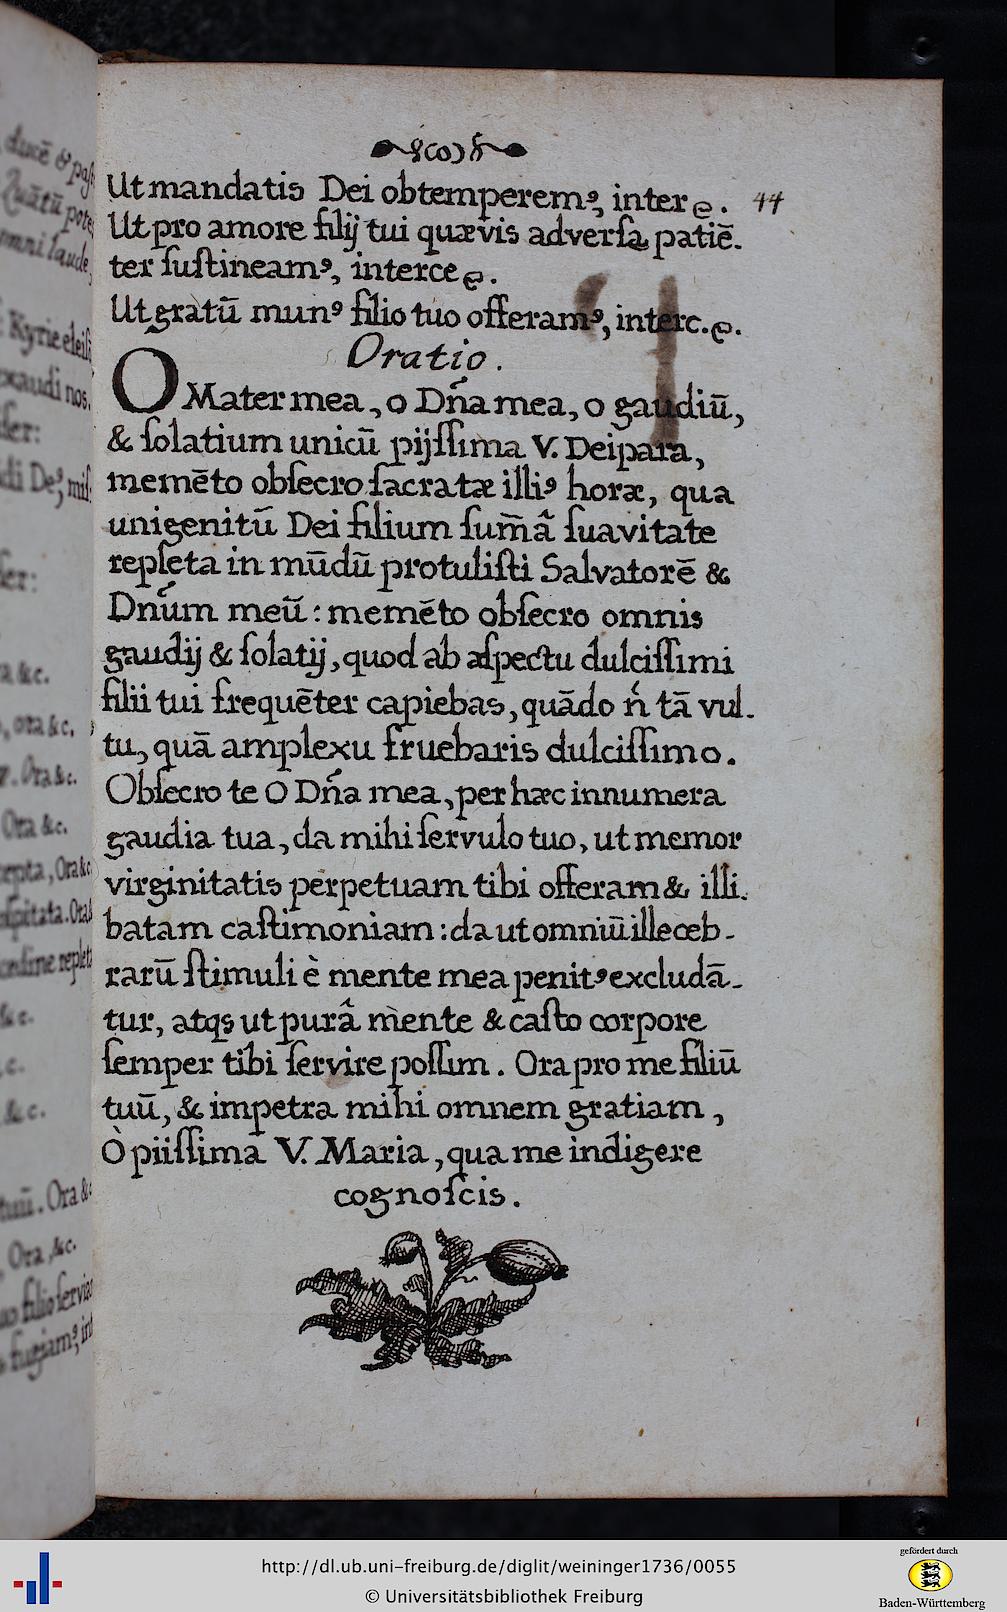 Ut mandatis Dei obtemperemꝰ, inter ꝛc. 44
Ut pro amore filij tui quævis adversa patiē-
ter ſuſtineamꝰ, interce ꝛc.
Ut gratū munꝰ filio tuo offeramꝰ, interc. ꝛc.
Oratio.
O Mater mea, o Dn̄a mea, o gaudiū,
& ſolatium unicū pijſſima V. Deipara,
memēto obſecro ſacratæ illiꝰ horæ, qua
unigenitū Dei filium ſum̄â ſuavitate
repleta in mūdū protuliſti Salvatorē &
Dnúm meū: memēto obſecro omnis
gaudij & ſolatij, quod ab aſpectu dulciſſimi
filii tui frequēter capiebas, quādo ń tā vul-
tu, quā amplexu fruebaris dulciſſimo.
Obſecro te O Dńa mea, per hæc innumera
gaudia tua, da mihi ſervulo tuo, ut memor
virginitatis perpetuam tibi offeram & illi-
batam caſtimoniam: da ut omniū illeceb-
rarū ſtimuli è mente mea penitꝰ excludā-
tur, atqs ut purâ mente & caſto corpore
ſemper tibi ſervire poſſim. Ora pro me filiū
tuū, & impetra mihi omnem gratiam,
Ò piiſſima V. Maria, qua me indigere
cognoſcis.
ducē &
Kyrie eleiſ
exaudi nos.
&c.
ora &c.
Ora &c.
Ora &c.
Ora &c
&c.
tuū. Ora &c
Ora, &c.
http://dl.ub.uni-freiburg.de/diglit/weininger1736/0055
© Universitätsbibliothek Freiburg
gefördert durch
Baden-Württemberg